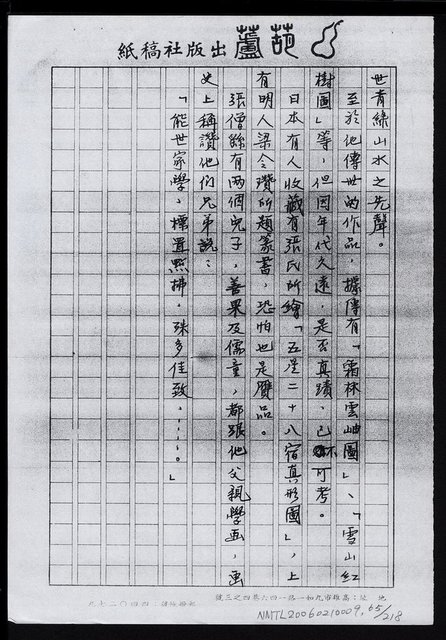 葫蘆出版社稿紙
世青綠山水之先聲。
至於他傳世的作品,據傳有「霜林雲岫圖」、「雪山紅
樹圖」等,但因年代久遠,是否真蹟,已不可考。
日本有人收藏有張氏所繪「五星二十八宿真形圖」,上
有明人梁令瓚所題篆書,恐怕也是贋品。
張僧繇有兩個兒子,善果及儒童,都張他父親學画,画
史上稱讚他们兄弟說:
「能世家學,標置點拂,殊多佳致,……。」
地址:高雄市九如一路一四六巷四之三號
四四〇二七九
NMTL20060210009, 65/218